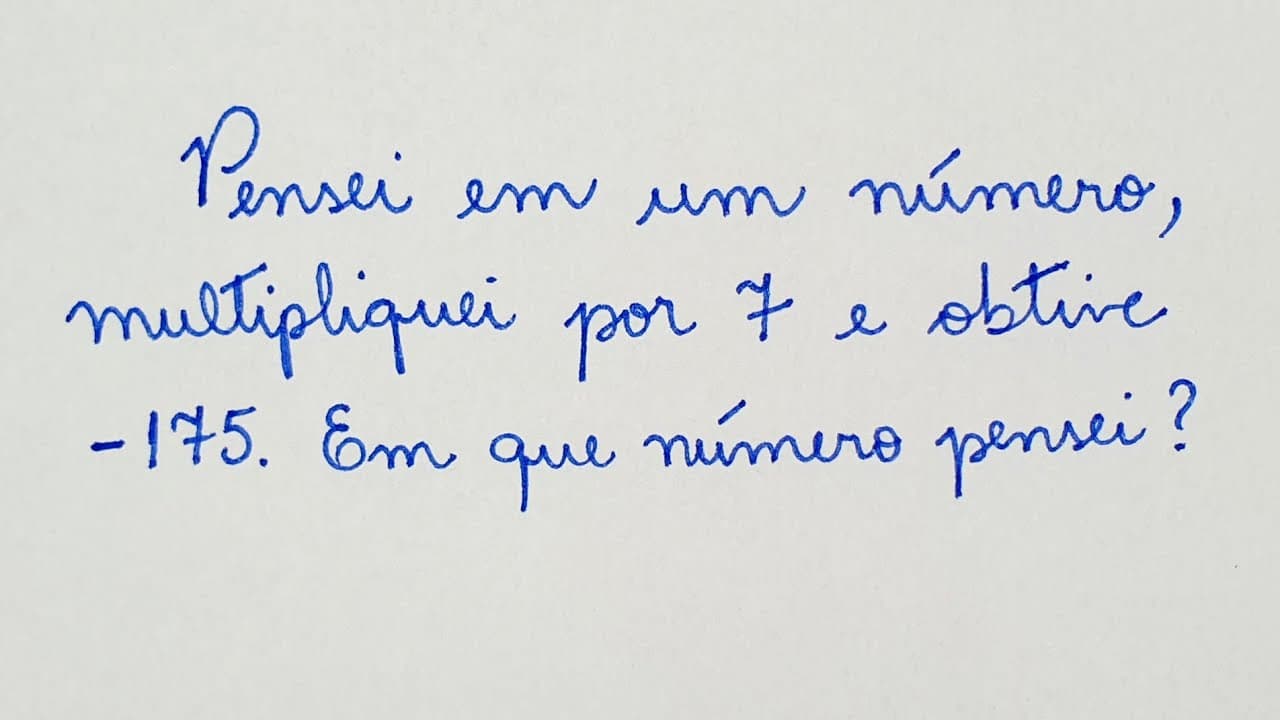 Pensei em um número,
multipliquei por 7 e obtive
-175. Em que número pensei?